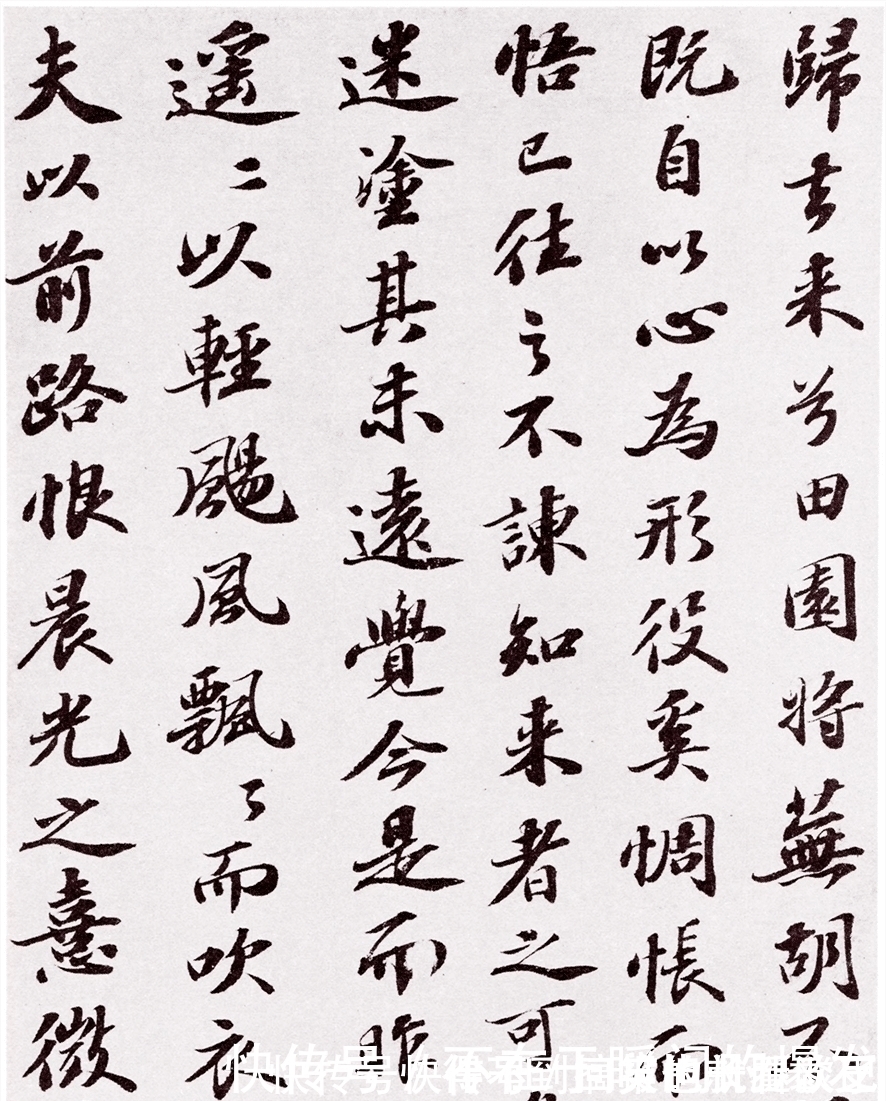 歸去来兮田園将蕪胡不
既自以心為形役奚惆悵而
悟已往之不諫知来者之可
迷塗其未遠覺今是而昨
遥二以輕颺風飄々而吹衣
夫以前路恨晨光之熹微
快传号